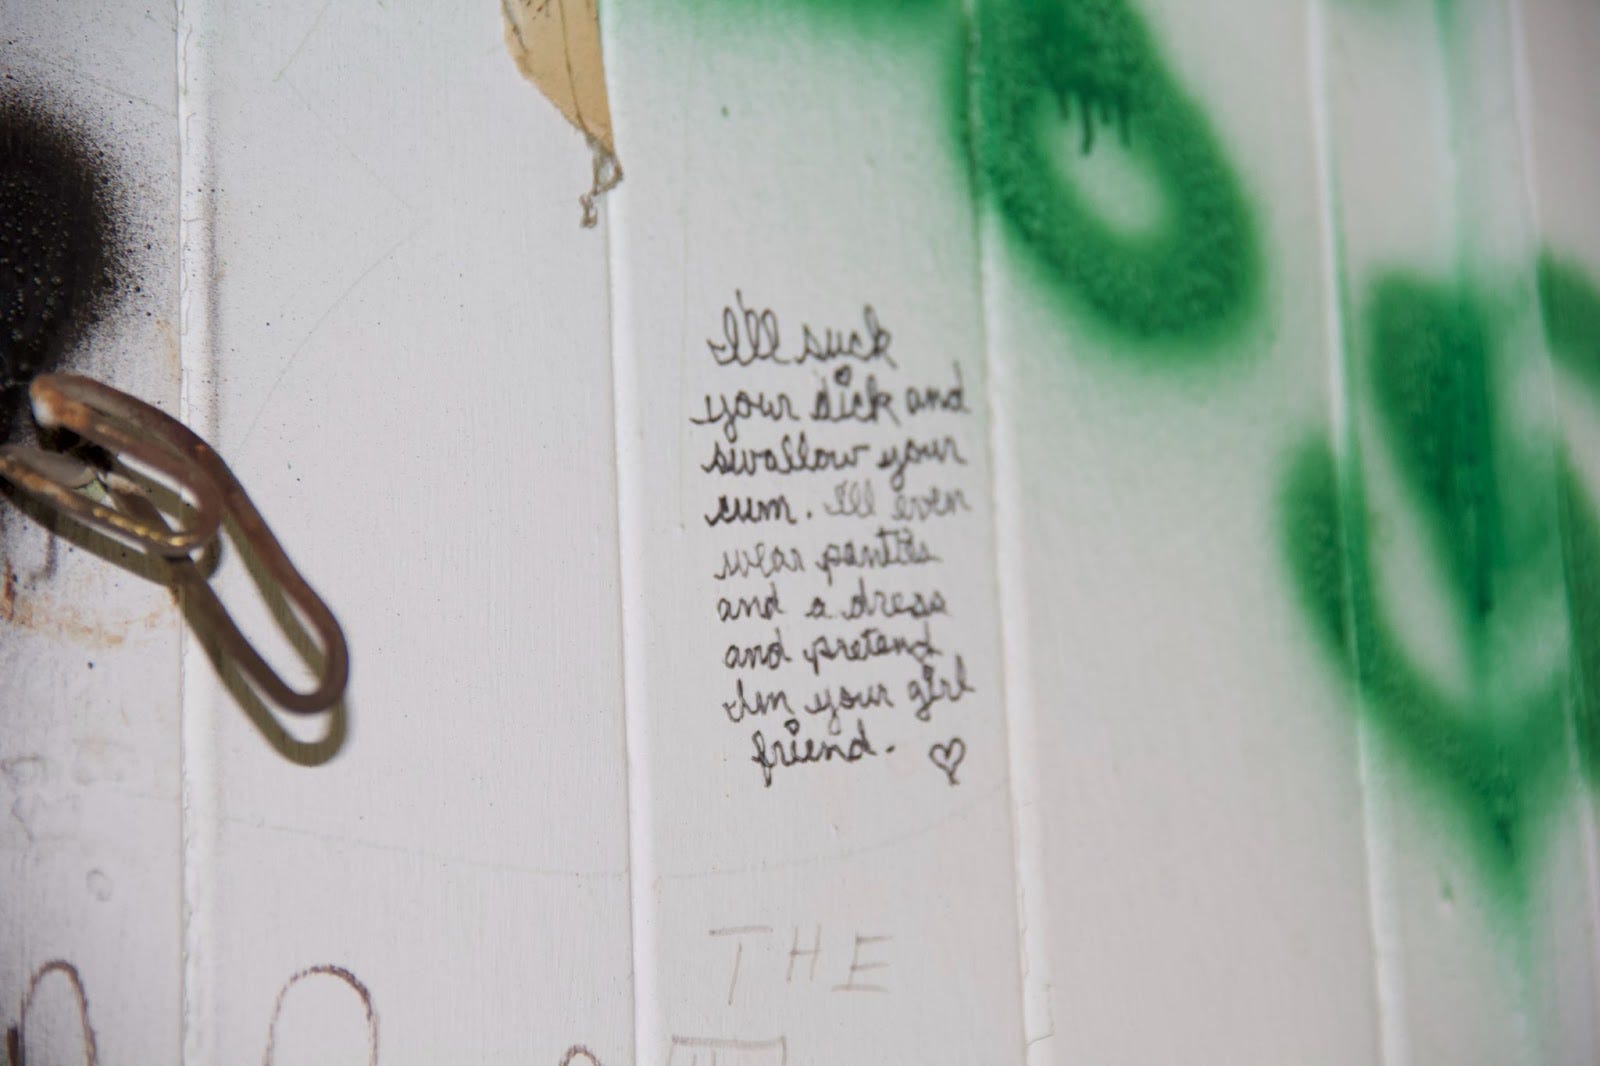 I'll suck
your dick and
swallow your
cum. I'll even
wear panties
and a dress
and pretend
Im your girl
friend.
THE